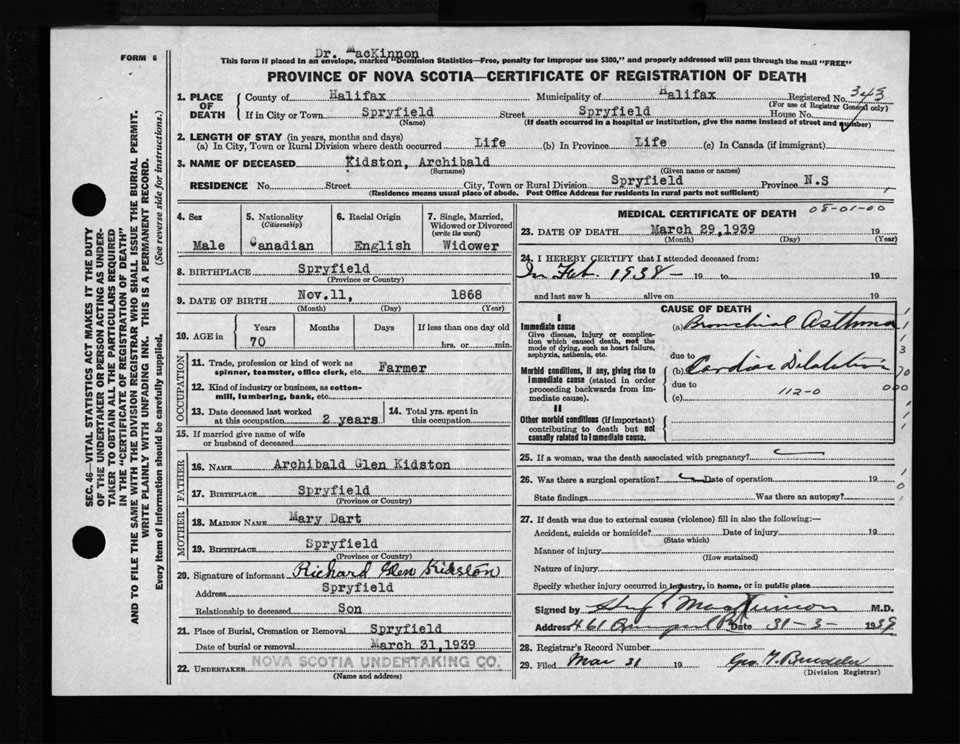 Dr. MacKinnon
FORM 6
This form if placed in an envelope, marked "Dominion Statistics—Free, penalty for improper use $300," and properly addressed will pass through the mail "FREE"
PROVINCE OF NOVA SCOTIA—CERTIFICATE OF REGISTRATION OF DEATH
SEC. 46—VITAL STATISTICS ACT MAKES IT THE DUTY
OF THE UNDERTAKER OR PERSON ACTING AS UNDER-
TAKER TO OBTAIN ALL THE PARTICULARS REQUIRED
IN THE "CERTIFICATE OF REGISTRATION OF DEATH"
AND TO FILE THE SAME WITH THE DIVISION REGISTRAR WHO SHALL ISSUE THE BURIAL PERMIT.
WRITE PLAINLY WITH UNFADING INK. THIS IS A PERMANENT RECORD.
Every item of information should be carefully supplied. (See reverse side for instructions.)
1. PLACE OF DEATH County of Halifax Municipality of Halifax Registered No. 343
(For use of Registrar General only)
If in City or Town Spryfield Street Spryfield House No.
(Name) (If death occurred in a hospital or institution, give the name instead of street and number)
2. LENGTH OF STAY (in years, months and days)
(a) In City, Town or Rural Division where death occurred Life (b) In Province Life (c) In Canada (if immigrant)
3. NAME OF DECEASED Kidston, Archibald
(Surname) (Given name or names)
RESIDENCE No. Street City, Town or Rural Division Spryfield Province N.S
(Residence means usual place of abode. Post Office Address for residents in rural parts not sufficient)
4. Sex 5. Nationality (Citizenship) 6. Racial Origin 7. Single, Married, Widowed or Divorced (write the word)
Male Canadian English Widower
8. BIRTHPLACE Spryfield
(Province or Country)
9. DATE OF BIRTH Nov.11, 1868
(Month) (Day) (Year)
10. AGE in Years Months Days If less than one day old
70 hrs. or min.
OCCUPATION
11. Trade, profession or kind of work as spinner, teamster, office clerk, etc. Farmer
12. Kind of industry or business, as cotton-mill, lumbering, bank, etc.
13. Date deceased last worked at this occupation 2 years 14. Total yrs. spent in this occupation
15. If married give name of wife or husband of deceased
FATHER
16. NAME Archibald Glen Kidston
17. BIRTHPLACE Spryfield
(Province or Country)
MOTHER
18. MAIDEN NAME Mary Dart
19. BIRTHPLACE Spryfield
(Province or Country)
20. Signature of informant Richard Glen Kidston
Address Spryfield
Relationship to deceased Son
21. Place of Burial, Cremation or Removal Spryfield
Date of burial or removal March 31,1939
22. UNDERTAKER NOVA SCOTIA UNDERTAKING CO.
(Name and address)
MEDICAL CERTIFICATE OF DEATH 08-01-00
23. DATE OF DEATH March 29,1939 19
(Month) (Day) (Year)
24. I HEREBY CERTIFY that I attended deceased from:
In Feb. 1938- 19 to 19
and last saw h alive on 19
CAUSE OF DEATH
I
Immediate cause (a) Bronchial Asthma
Give disease, injury or complication which caused death, not the mode of dying, such as heart failure, asphyxia, asthenia, etc.
due to
Morbid conditions, if any, giving rise to immediate cause (stated in order proceeding backwards from immediate cause). (b) Cardiac Dilatation
due to
(c) 112-0
II
Other morbid conditions (if important) contributing to death but not causally related to immediate cause.
25. If a woman, was the death associated with pregnancy?
26. Was there a surgical operation? Date of operation 19
State findings Was there an autopsy?
27. If death was due to external causes (violence) fill in also the following:—
Accident, suicide or homicide? Date of injury 19
(State which)
Manner of injury
(How sustained)
Nature of injury
Specify whether injury occurred in industry, in home, or in public place
Signed by MacKinnon M.D.
Address 461 Date 31-3- 1939
28. Registrar's Record Number
29. Filed Mar 31 19
(Division Registrar)